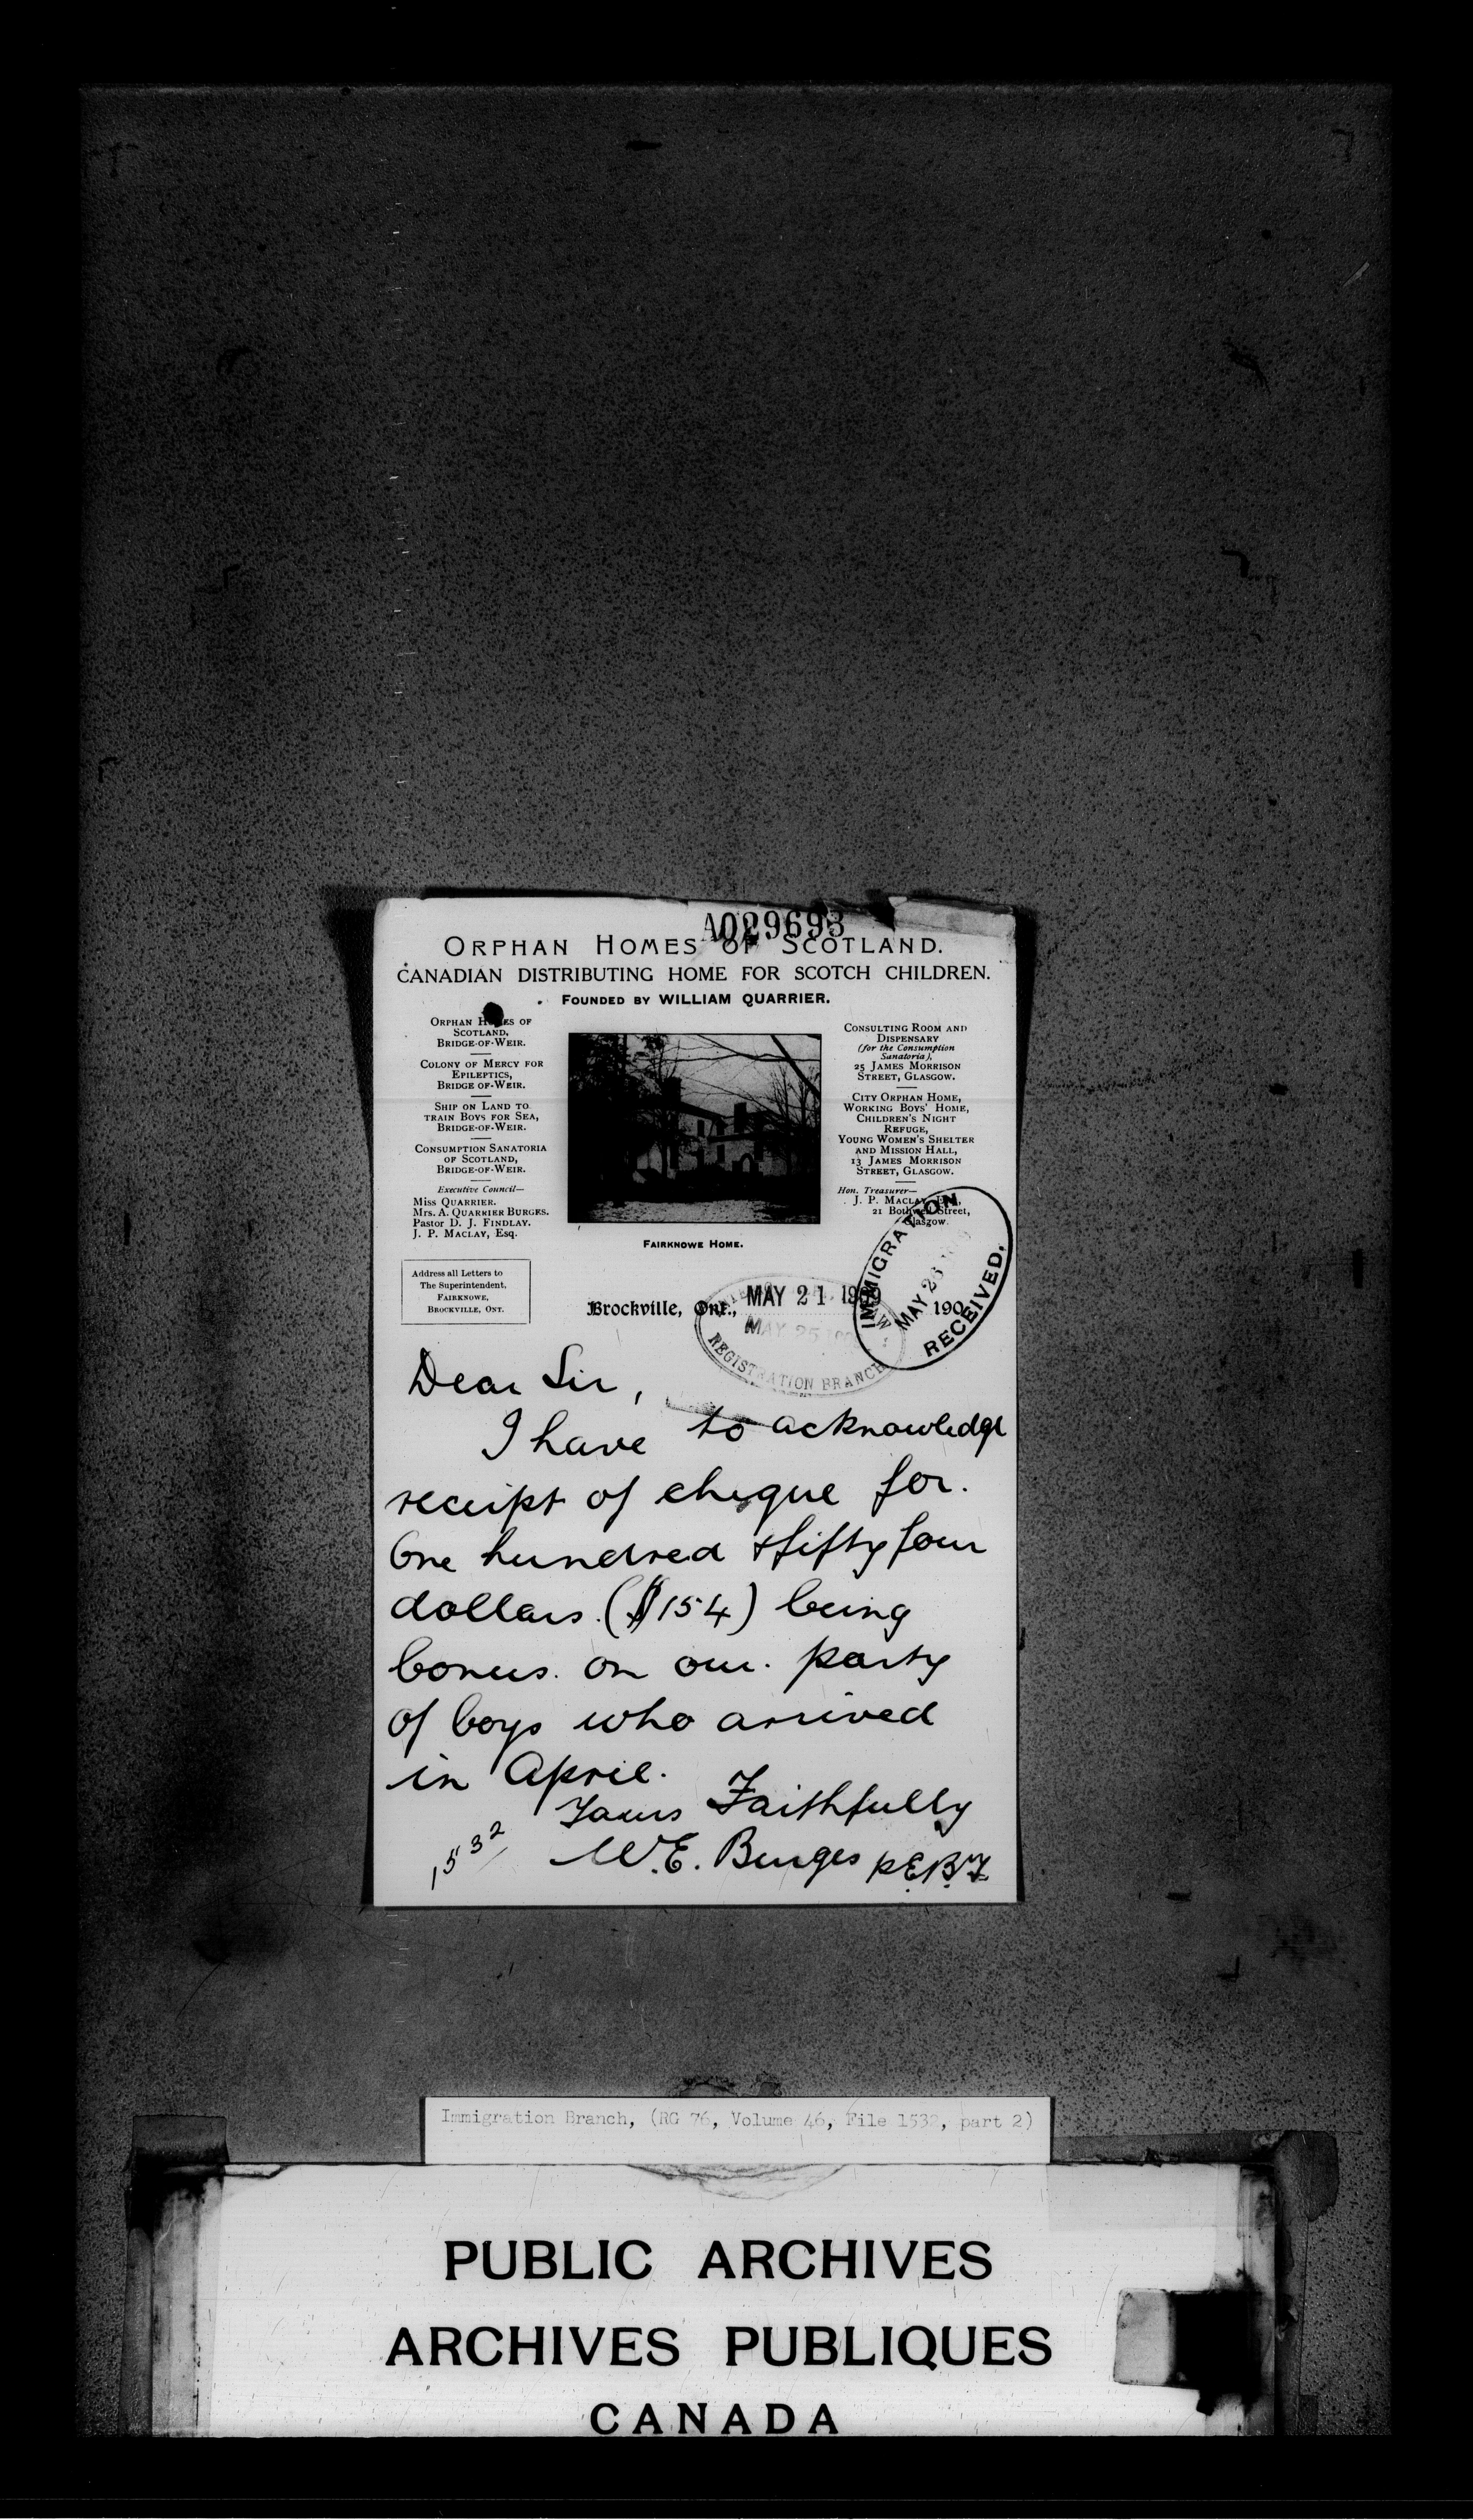 A029693
ORPHAN HOMES OF SCOTLAND.
CANADIAN DISTRIBUTING HOME FOR SCOTCH CHILDREN.
FOUNDED BY WILLIAM QUARRIER.
ORPHAN HOMES OF
SCOTLAND,
BRIDGE-OF-WEIR.
COLONY OF MERCY FOR
EPILEPTICS,
BRIDGE OF-WEIR.
SHIP ON LAND TO
TRAIN BOYS FOR SEA,
BRIDGE-OF-WEIR.
CONSUMPTION SANATORIA
OF SCOTLAND,
BRIDGE-OF-WEIR.
Executive Council—
Miss QUARRIER.
Mrs. A. QUARRIER BURGES.
Pastor D. J. FINDLAY.
J. P. MACLAY, Esq.
FAIRKNOWE HOME.
CONSULTING ROOM AND
DISPENSARY
(for the Consumption
Sanatoria),
25 JAMES MORRISON
STREET, GLASGOW.
CITY ORPHAN HOME,
WORKING BOYS' HOME,
CHILDREN'S NIGHT
REFUGE,
YOUNG WOMEN'S SHELTER
AND MISSION HALL,
13 JAMES MORRISON
STREET, GLASGOW.
Hon. Treasurer—
J. P. MACLAY,
21 Bothwell Street,
Glasgow.
Address all Letters to
The Superintendent,
FAIRKNOWE,
BROCKVILLE, ONT.
Brockville, Ont., MAY 21 1909 190
IMMIGRATION
MAY 26
RECEIVED.
MAY 25
REGISTRATION BRANCH
Dear Sir,
I have to acknowledge
receipt of cheque for.
One hundred & fifty four
dollars. ($154) being
bonus. on our. party
of boys who arrived
in April.
Yours Faithfully
W.E. Burges
1532
Immigration Branch, (RG 76, Volume 46, File 1532, part 2)
PUBLIC ARCHIVES
ARCHIVES PUBLIQUES
CANADA